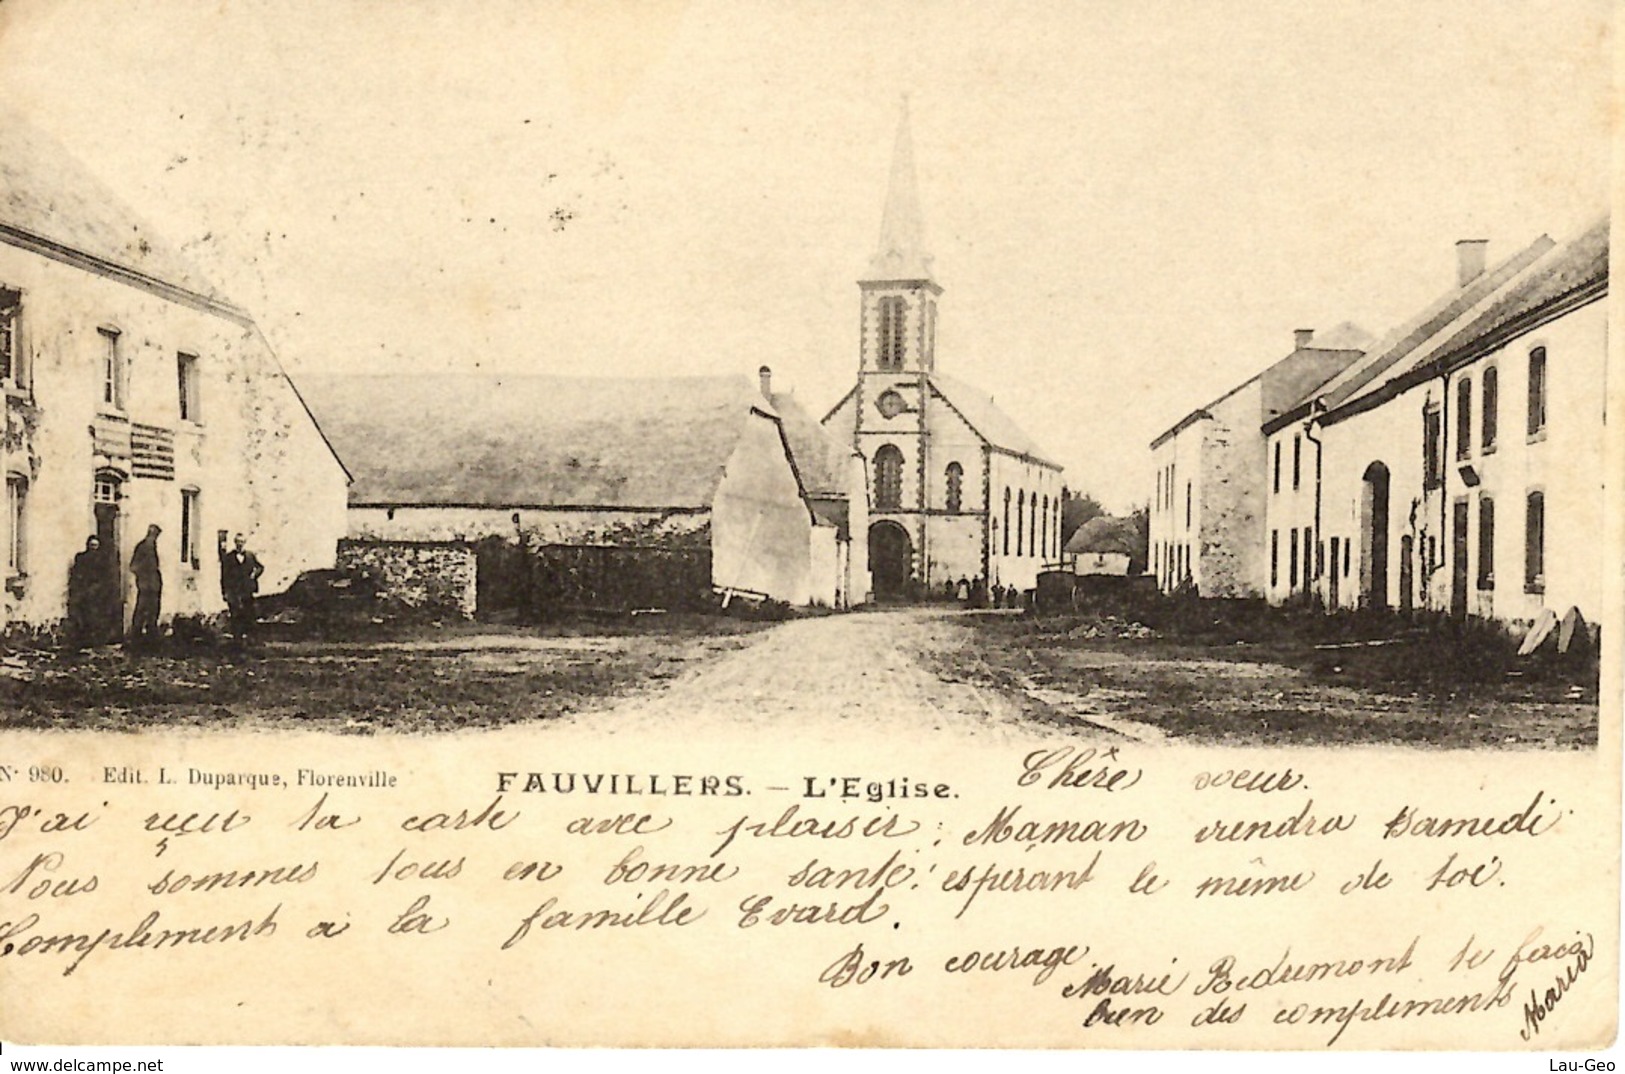 N° 980. Edit. L. Duparque, Florenville
FAUVILLERS. — L'Eglise.
Chère soeur.
J'ai reçu ta carte avec plaisir; Maman viendra Samedi.
Nous sommes tous en bonne santé! espérant le même de toi.
Compliments à la famille Evard.
Bon courage.
Marie Redumont te fais
bien des compliments
Maria
delcampe.net
Lau-Geo